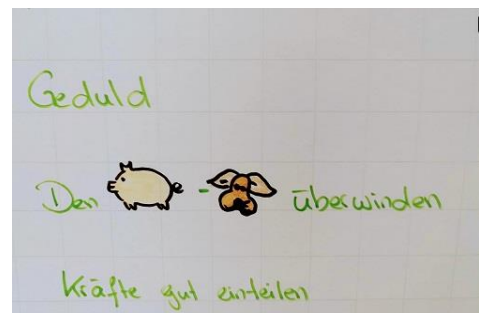 Geduld
Den - überwinden
Kräfte gut einteilen